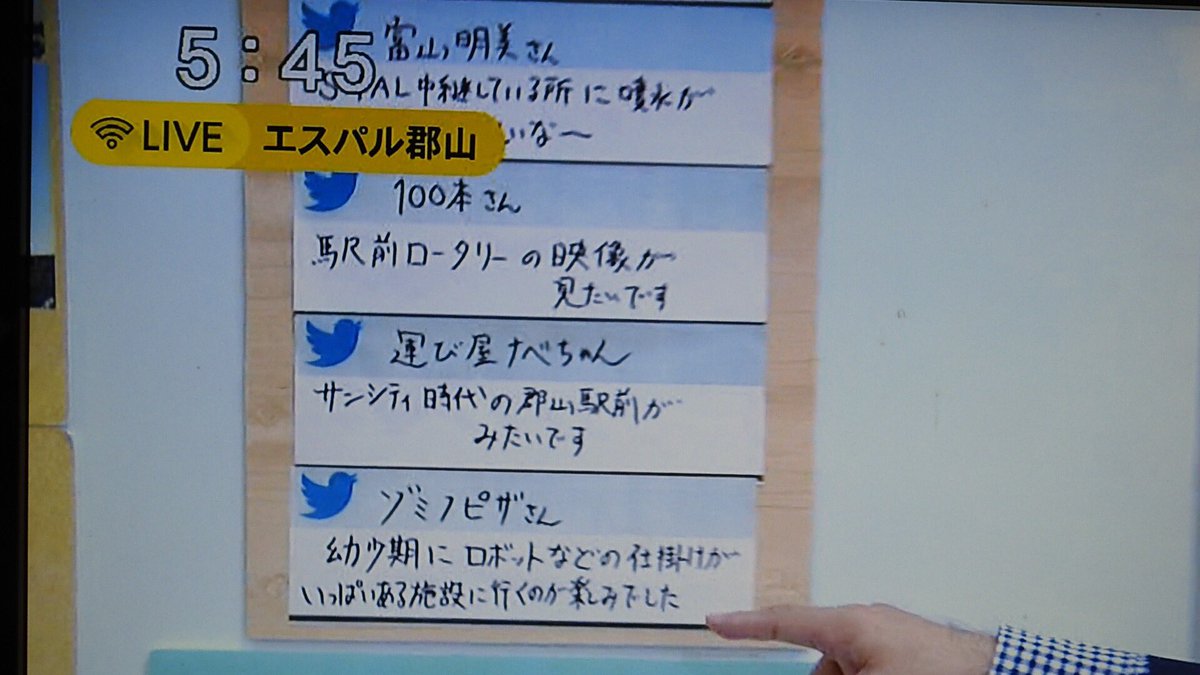 5:45
LIVE エスパル郡山
富山明美さん
PAL中継している所に噴水が
いいな～
100本さん
駅前ロータリーの映像が
見たいです
運び屋ナベちゃん
サンシティ時代の郡山駅前が
みたいです
ゾミノピザさん
幼少期にロボットなどの仕掛けが
いっぱいある施設に行くのが楽しみでした